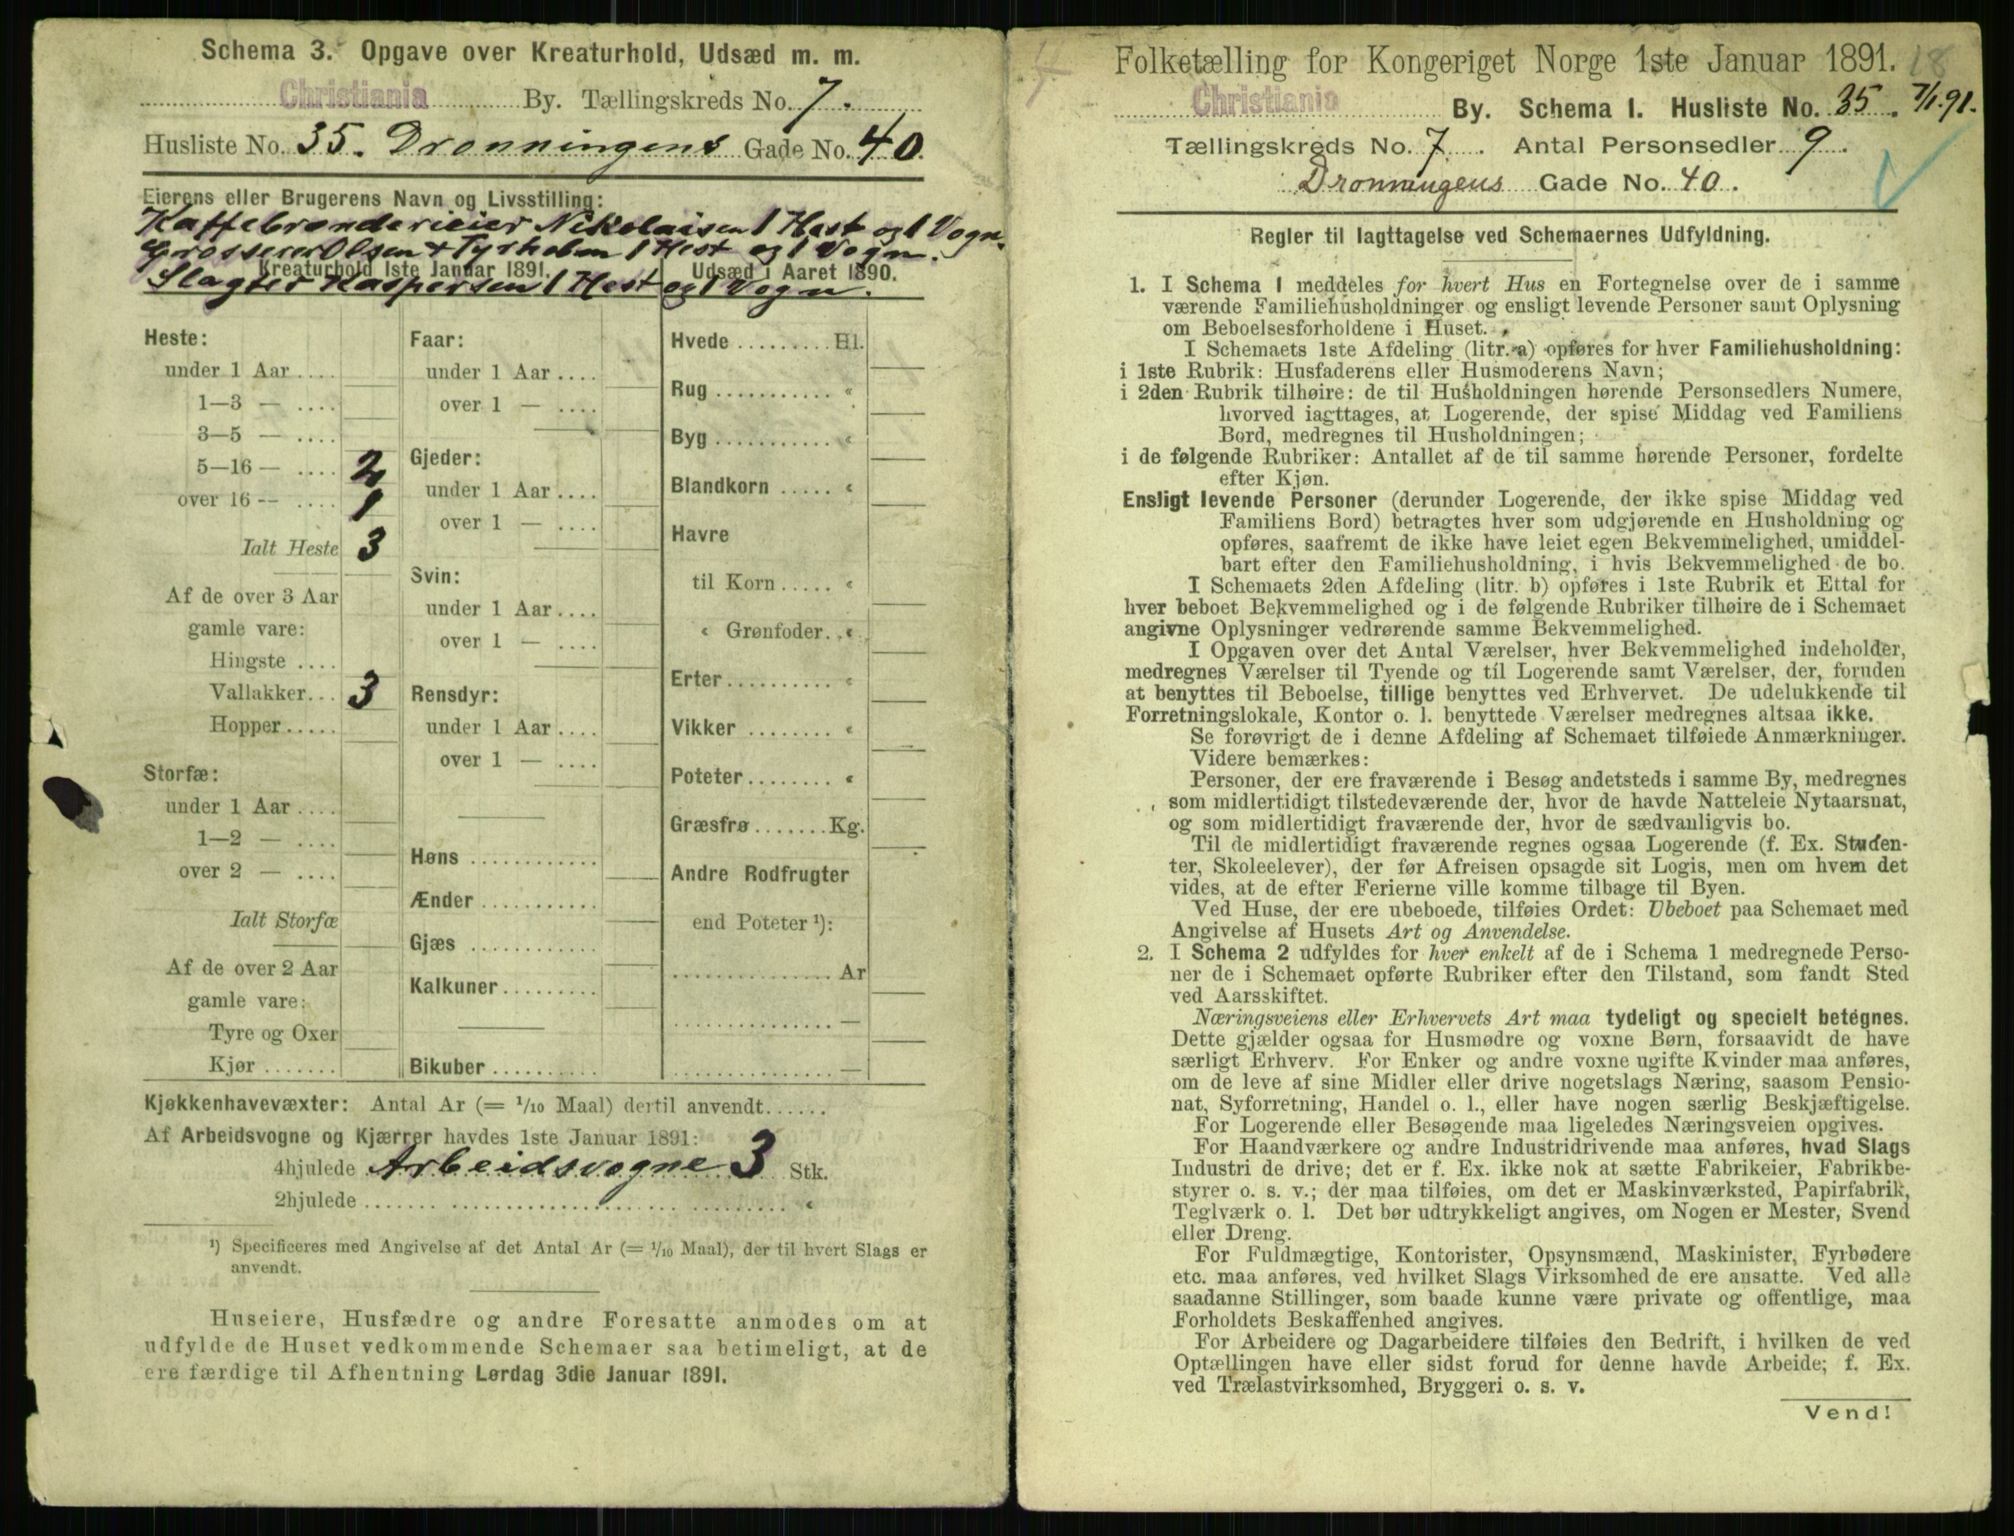 Schema 3. Opgave over Kreaturhold, Udsæd m. m.
Christiania By. Tællingskreds No. 7.
Husliste No. 35. Dronningens Gade No. 40.
Eierens eller Brugerens Navn og Livsstilling:
Kaffebrænderieier Nikolaisen 1 Hest og 1 Vogn.
Grosserer Olsen + Tyrholm 1 Hest og 1 Vogn.
Kreaturhold 1ste Januar 1891. Udsæd i Aaret 1890.
Slagter Kaspersen 1 Hest og 1 Vogn.
Heste:
under 1 Aar ....
1—3 — ....
3—5 — ....
5—16 — .... 2
over 16 -- .... 1
Ialt Heste 3
Af de over 3 Aar
gamle vare:
Hingste ....
Vallakker... 3
Hopper.....
Storfæ:
under 1 Aar ....
1—2 — ....
over 2 — ....
Ialt Storfæ
Af de over 2 Aar
gamle vare:
Tyre og Oxer
Kjør .......
Faar:
under 1 Aar ....
over 1 — ....
Gjeder:
under 1 Aar ....
over 1 — ....
Svin:
under 1 Aar ....
over 1 — ....
Rensdyr:
under 1 Aar ....
over 1 — ....
Høns ............
Ænder ...........
Gjæs ............
Kalkuner.........
Bikuber ..........
Hvede ......... Hl.
Rug ........... «
Byg ........... «
Blandkorn ..... «
Havre
til Korn ..... «
« Grønfoder. . «
Erter.......... «
Vikker ........ «
Poteter........ «
Græsfrø ....... Kg.
Andre Rodfrugter
end Poteter ¹):
............... Ar
............... —
............... —
Kjøkkenhavevæxter: Antal Ar (= 1/10 Maal) dertil anvendt......
Af Arbeidsvogne og Kjærrer havdes 1ste Januar 1891:
4hjulede Arbeidsvogne 3 Stk.
2hjulede ....... «
¹) Specificeres med Angivelse af det Antal Ar (= 1/10 Maal), der til hvert Slags er
anvendt.
Huseiere, Husfædre og andre Foresatte anmodes om at
udfylde de Huset vedkommende Schemaer saa betimeligt, at de
ere færdige til Afhentning Lørdag 3die Januar 1891.
Folketælling for Kongeriget Norge 1ste Januar 1891. 18
Christiania By. Schema I. Husliste No. 35. 7/1.91.
Tællingskreds No. 7. Antal Personsedler 9.
Dronningens Gade No. 40.
Regler til Iagttagelse ved Schemaernes Udfyldning.
1. I Schema I meddeles for hvert Hus en Fortegnelse over de i samme
værende Familiehusholdninger og ensligt levende Personer samt Oplysning
om Beboelsesforholdene i Huset.
I Schemaets 1ste Afdeling (litr. a) opføres for hver Familiehusholdning:
i 1ste Rubrik: Husfaderens eller Husmoderens Navn;
i 2den Rubrik tilhøire: de til Husholdningen hørende Personsedlers Numere,
hvorved iagttages, at Logerende, der spise Middag ved Familiens
Bord, medregnes til Husholdningen;
i de følgende Rubriker: Antallet af de til samme hørende Personer, fordelte
efter Kjøn.
Ensligt levende Personer (derunder Logerende, der ikke spise Middag ved
Familiens Bord) betragtes hver som udgjørende en Husholdning og
opføres, saafremt de ikke have leiet egen Bekvemmelighed, umiddel-
bart efter den Familiehusholdning, i hvis Bekvemmelighed de bo.
I Schemaets 2den Afdeling (litr. b) opføres i 1ste Rubrik et Ettal for
hver beboet Bekvemmelighed og i de følgende Rubriker tilhøire de i Schemaet
angivne Oplysninger vedrørende samme Bekvemmelighed.
I Opgaven over det Antal Værelser, hver Bekvemmelighed indeholder,
medregnes Værelser til Tyende og til Logerende samt Værelser, der, foruden
at benyttes til Beboelse, tillige benyttes ved Erhvervet. De udelukkende til
Forretningslokale, Kontor o. l. benyttede Værelser medregnes altsaa ikke.
Se forøvrigt de i denne Afdeling af Schemaet tilføiede Anmærkninger.
Videre bemærkes:
Personer, der ere fraværende i Besøg andetsteds i samme By, medregnes
som midlertidigt tilstedeværende der, hvor de havde Natteleie Nytaarsnat,
og som midlertidigt fraværende der, hvor de sædvanligvis bo.
Til de midlertidigt fraværende regnes ogsaa Logerende (f. Ex. Studen-
ter, Skoleelever), der før Afreisen opsagde sit Logis, men om hvem det
vides, at de efter Ferierne ville komme tilbage til Byen.
Ved Huse, der ere ubeboede, tilføies Ordet: Ubeboet paa Schemaet med
Angivelse af Husets Art og Anvendelse.
2. I Schema 2 udfyldes for hver enkelt af de i Schema 1 medregnede Perso-
ner de i Schemaet opførte Rubriker efter den Tilstand, som fandt Sted
ved Aarsskiftet.
Næringsveiens eller Erhvervets Art maa tydeligt og specielt betegnes.
Dette gjælder ogsaa for Husmødre og voxne Børn, forsaavidt de have
særligt Erhverv. For Enker og andre voxne ugifte Kvinder maa anføres,
om de leve af sine Midler eller drive nogetslags Næring, saasom Pensio-
nat, Syforretning, Handel o. l., eller have nogen særlig Beskjæftigelse.
For Logerende eller Besøgende maa ligeledes Næringsveien opgives.
For Haandværkere og andre Industridrivende maa anføres, hvad Slags
Industri de drive; det er f. Ex. ikke nok at sætte Fabrikeier, Fabrikbe-
styrer o. s. v.; der maa tilføies, om det er Maskinværksted, Papirfabrik,
Teglværk o. l. Det bør udtrykkeligt angives, om Nogen er Mester, Svend
eller Dreng.
For Fuldmægtige, Kontorister, Opsynsmænd, Maskinister, Fyrbødere
etc. maa anføres, ved hvilket Slags Virksomhed de ere ansatte. Ved alle
saadanne Stillinger, som baade kunne være private og offentlige, maa
Forholdets Beskaffenhed angives.
For Arbeidere og Dagarbeidere tilføies den Bedrift, i hvilken de ved
Optællingen have eller sidst forud for denne havde Arbeide; f. Ex.
ved Trælastvirksomhed, Bryggeri o. s. v.
Vend!